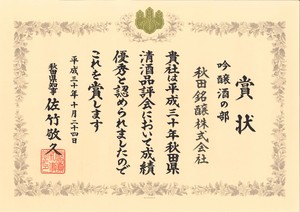 賞状
吟醸酒の部
秋田銘醸株式会社
貴社は平成三十年秋田県
清酒品評会において成績
優秀と認められましたので
これを賞します
平成三十年十月二十四日
秋田県知事 佐竹敬久